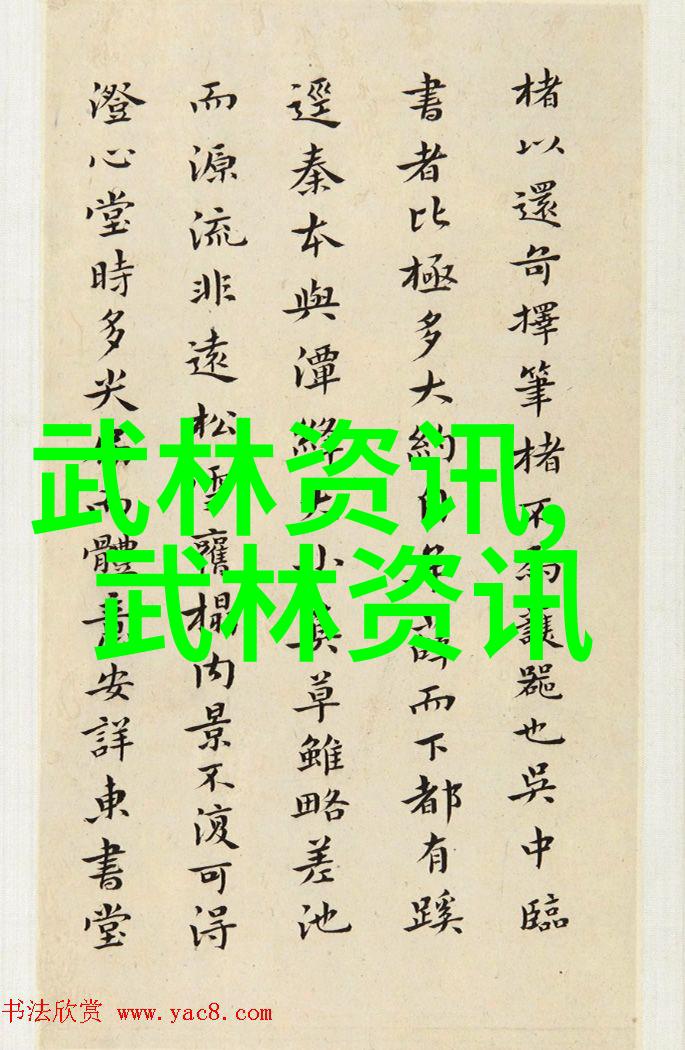 楮以還擇筆楮不器也吳中臨
書者比極多大約而下都有蹊
逕秦本與潭絳大小真草雖略差池
而源流非遠松雪舊榻内景不復可得
澄心堂時多尖而體意安詳東書堂
武林资讯,
武林资讯
书法欣赏 www.yac8.com